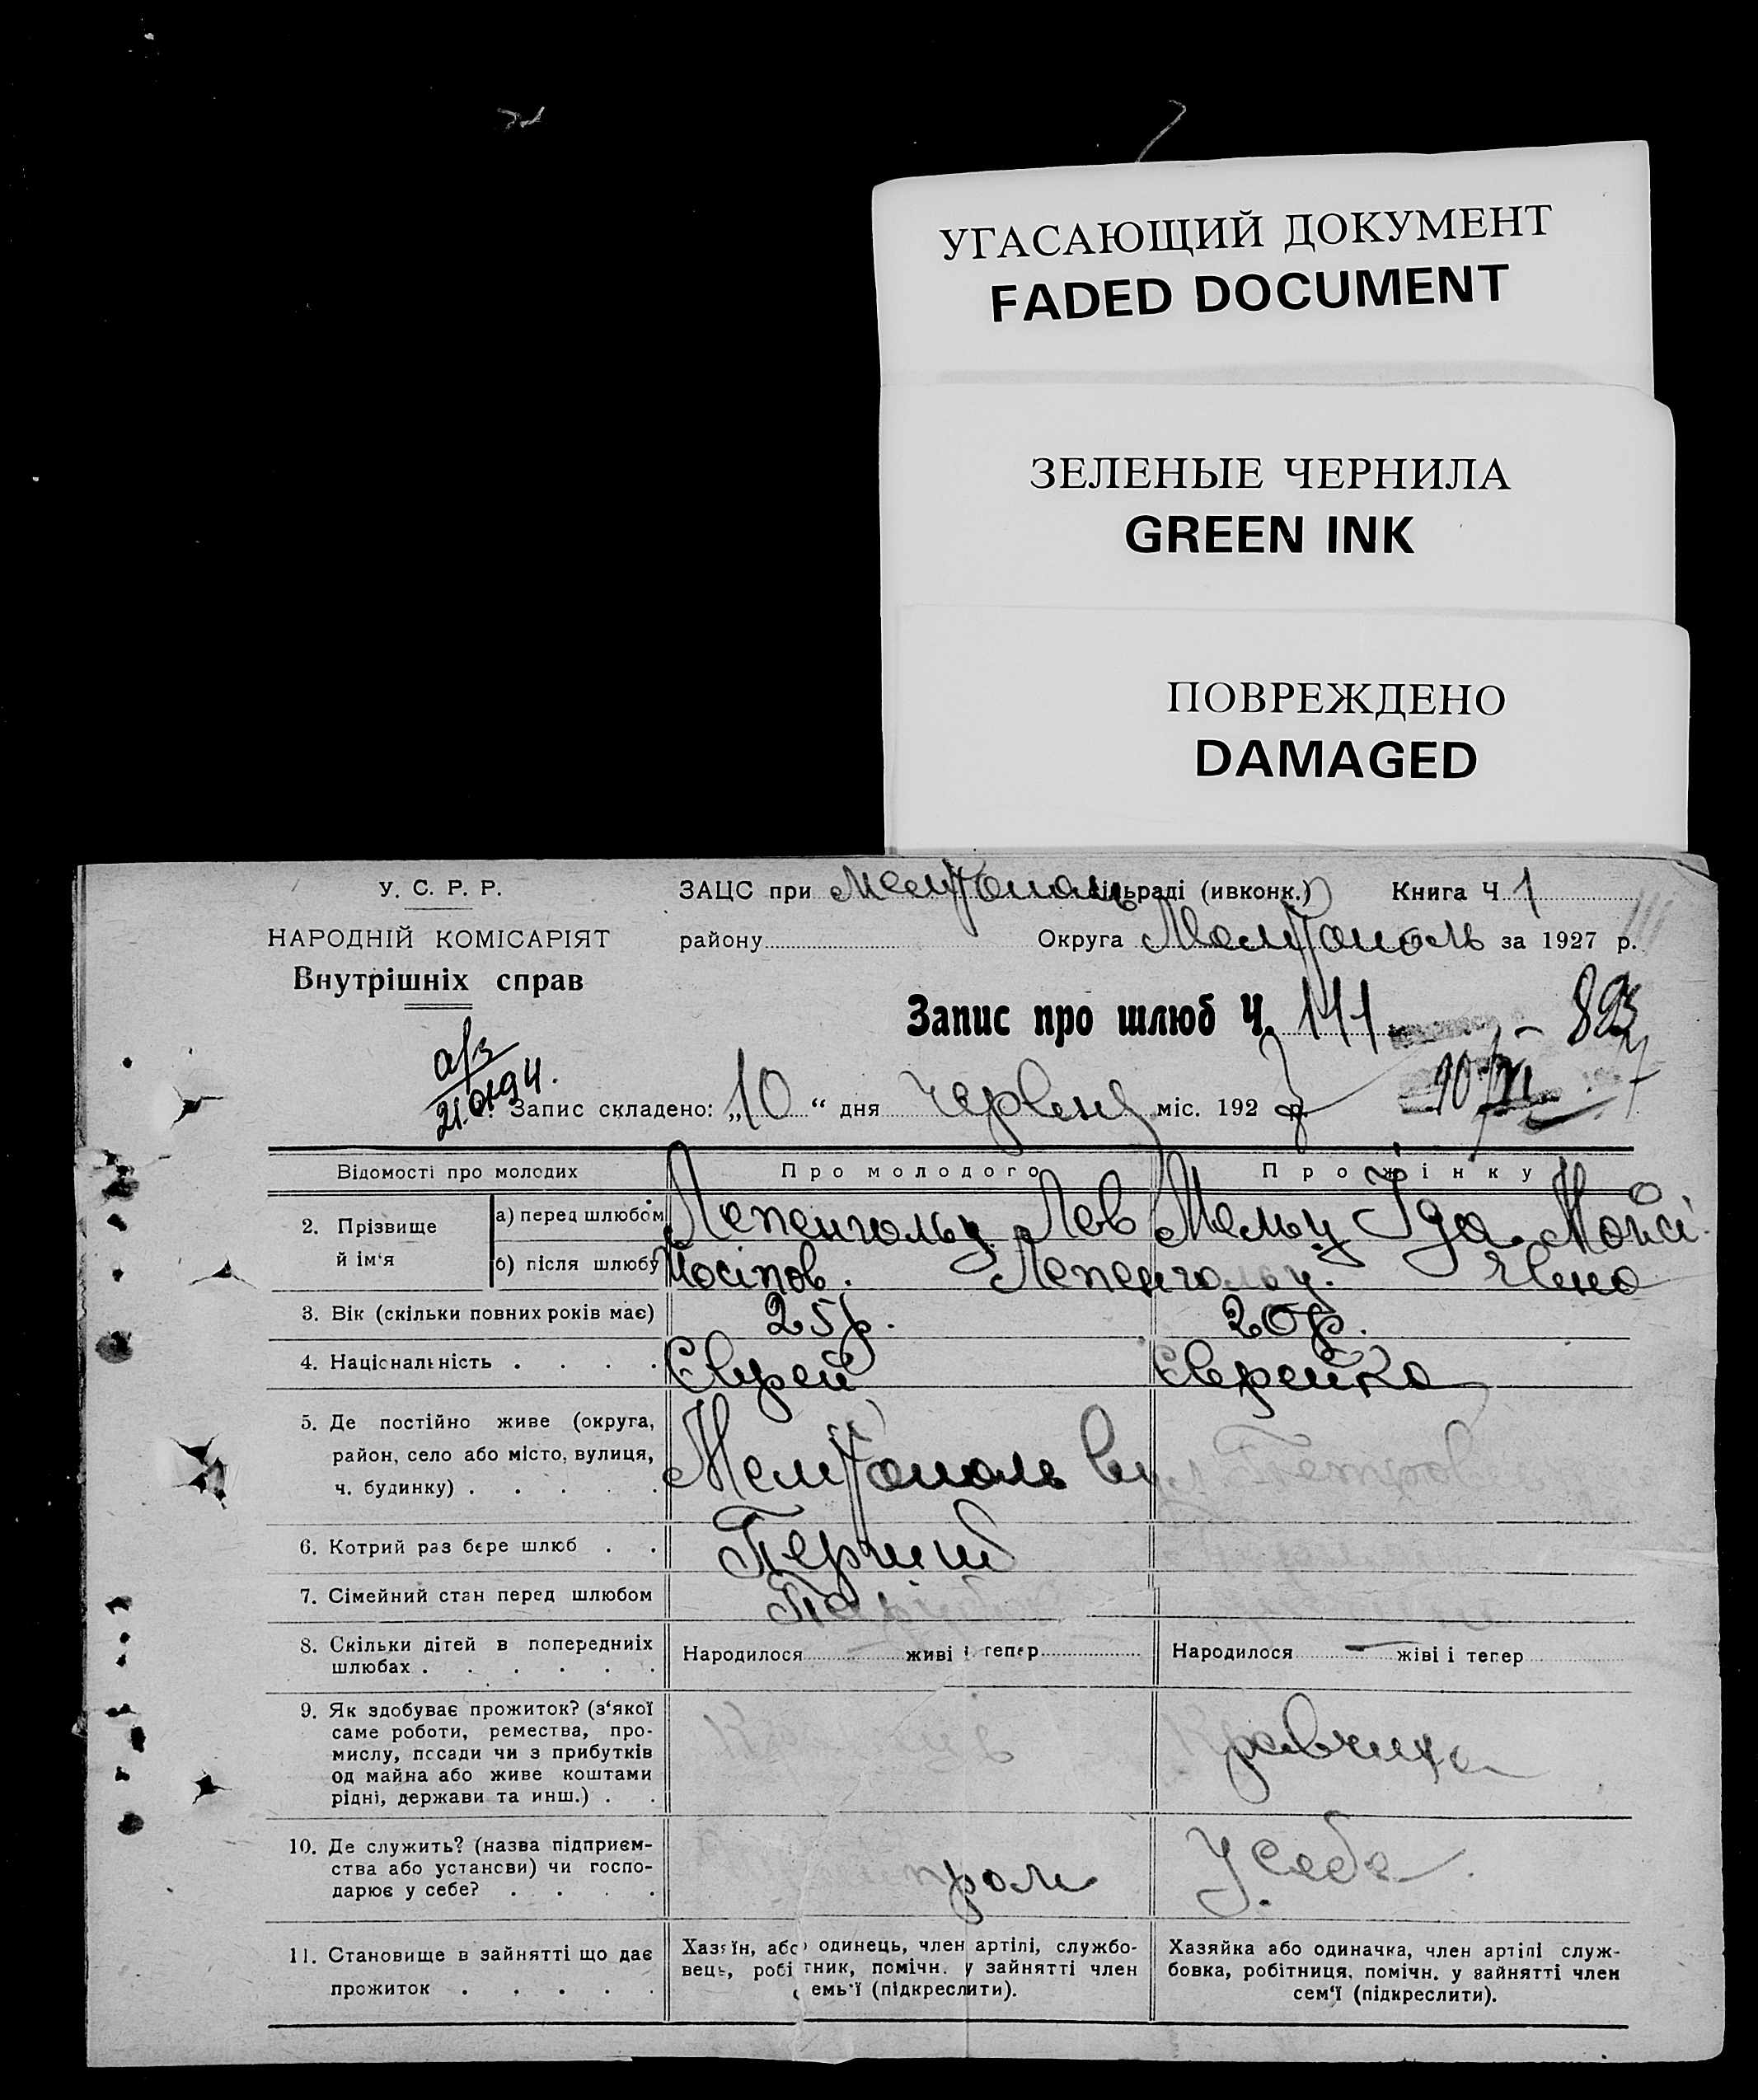 УГАСАЮЩИЙ ДОКУМЕНТ
FADED DOCUMENT
ЗЕЛЕНЫЕ ЧЕРНИЛА
GREEN INK
ПОВРЕЖДЕНО
DAMAGED
У. С. Р. Р.
НАРОДНІЙ КОМІСАРІЯТ
Внутрішніх справ
ЗАЦС при Мелітополь сільраді (ивконк.) Книга Ч 1
району Округа Мелітополь за 1927 р.
Запис про шлюб Ч. 111 - 893
21.
Запис складено: „10“ дня червня міс. 1927 р.
Відомості про молодих Про молодого Про жінку
2. Прізвище й ім‘я
а) перед шлюбом Лепенгольц Лев Мельц Іда Мойсі-
б) після шлюбу Йосіпов. Лепенгольц. євна
3. Вік (скільки повних років має) 25 р. 20 р.
4. Національність . . . . Єврей Єврейка
5. Де постійно живе (округа,
район, село або місто, вулиця,
ч. будинку) . . . . . Мелітополь вул.
6. Котрий раз бере шлюб . . Перший
7. Сімейний стан перед шлюбом
8. Скільки дітей в попередніх
шлюбах . . . . . .
Народилося живі і тепер Народилося — жіві і тепер
9. Як здобуває прожиток? (з‘якої
саме роботи, ремества, про-
мислу, посади чи з прибутків
од майна або живе коштами
рідні, держави та инш.) . .
Кравчиха
10. Де служить? (назва підприєм-
ства або установи) чи госпо-
дарює у себе? . . . .
У себе.
11. Становище в зайнятті що дає
прожиток . . . . .
Хазяїн, або одинець, член артілі, службо-
вець, робітник, помічн. у зайнятті член
семь‘ї (підкреслити).
Хазяйка або одиначка, член артілі служ-
бовка, робітниця, помічн. у зайнятті член
сем‘ї (підкреслити).